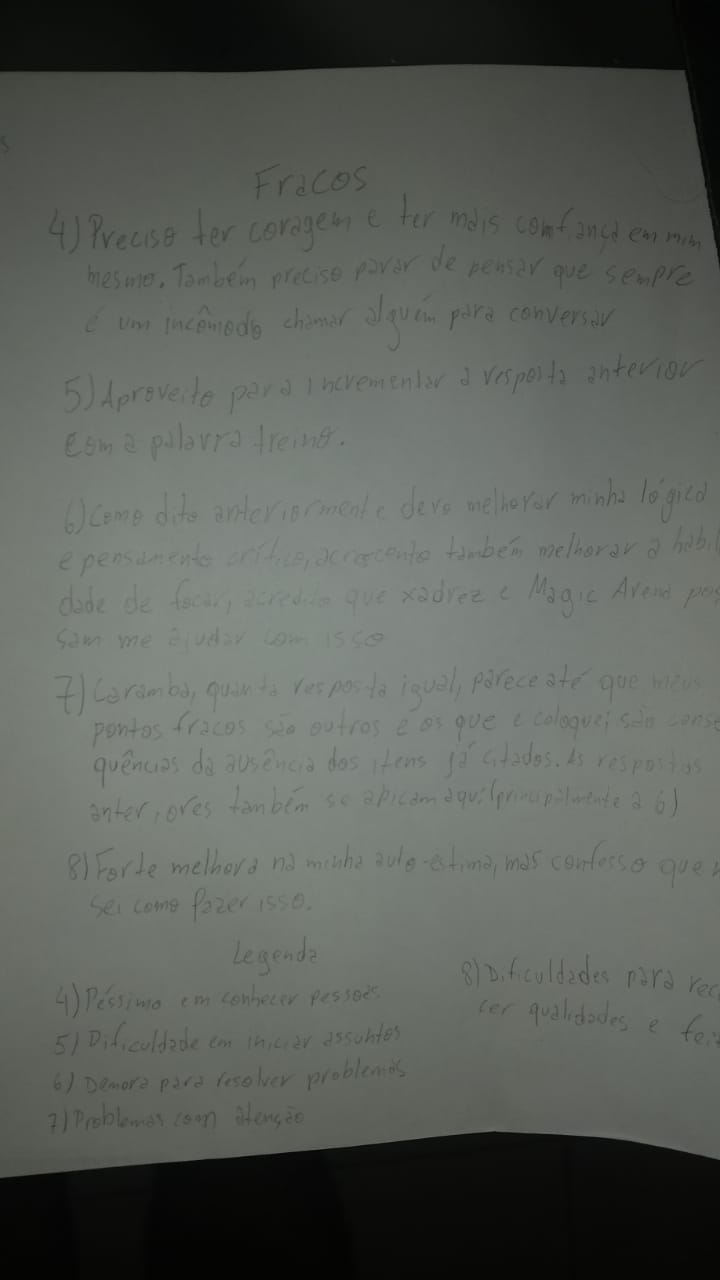 s
Fracos
4) Preciso ter coragem e ter mais comfiança em mim
mesmo. Também preciso parar de pensar que sempre
é um incômodo chamar alguém para conversar
5) Aproveito para incrementar a resposta anterior
com a palavra treino.
6) Como dito anteriormente devo melhorar minha lógica
e pensamento crítico, acrescento também melhorar a habili
dade de focar, acredito que xadrez e Magic Arena pos
sam me ajudar com isso
7) Caramba, quanta resposta igual, parece até que meus
pontos fracos são outros e os que e coloquei são conse
quências da ausência dos itens já citados. As respostas
anteriores também se apicam aqui (principalmente a 6)
8) Forte melhora na minha auto-estima, mas confesso que
sei como fazer isso.
Legenda
4) Péssimo em conhecer pessoas
5) Dificuldade em iniciar assuntos
6) Demora para resolver problemas
7) Problemas com atenção
8) Dificuldades para
cer qualidades e